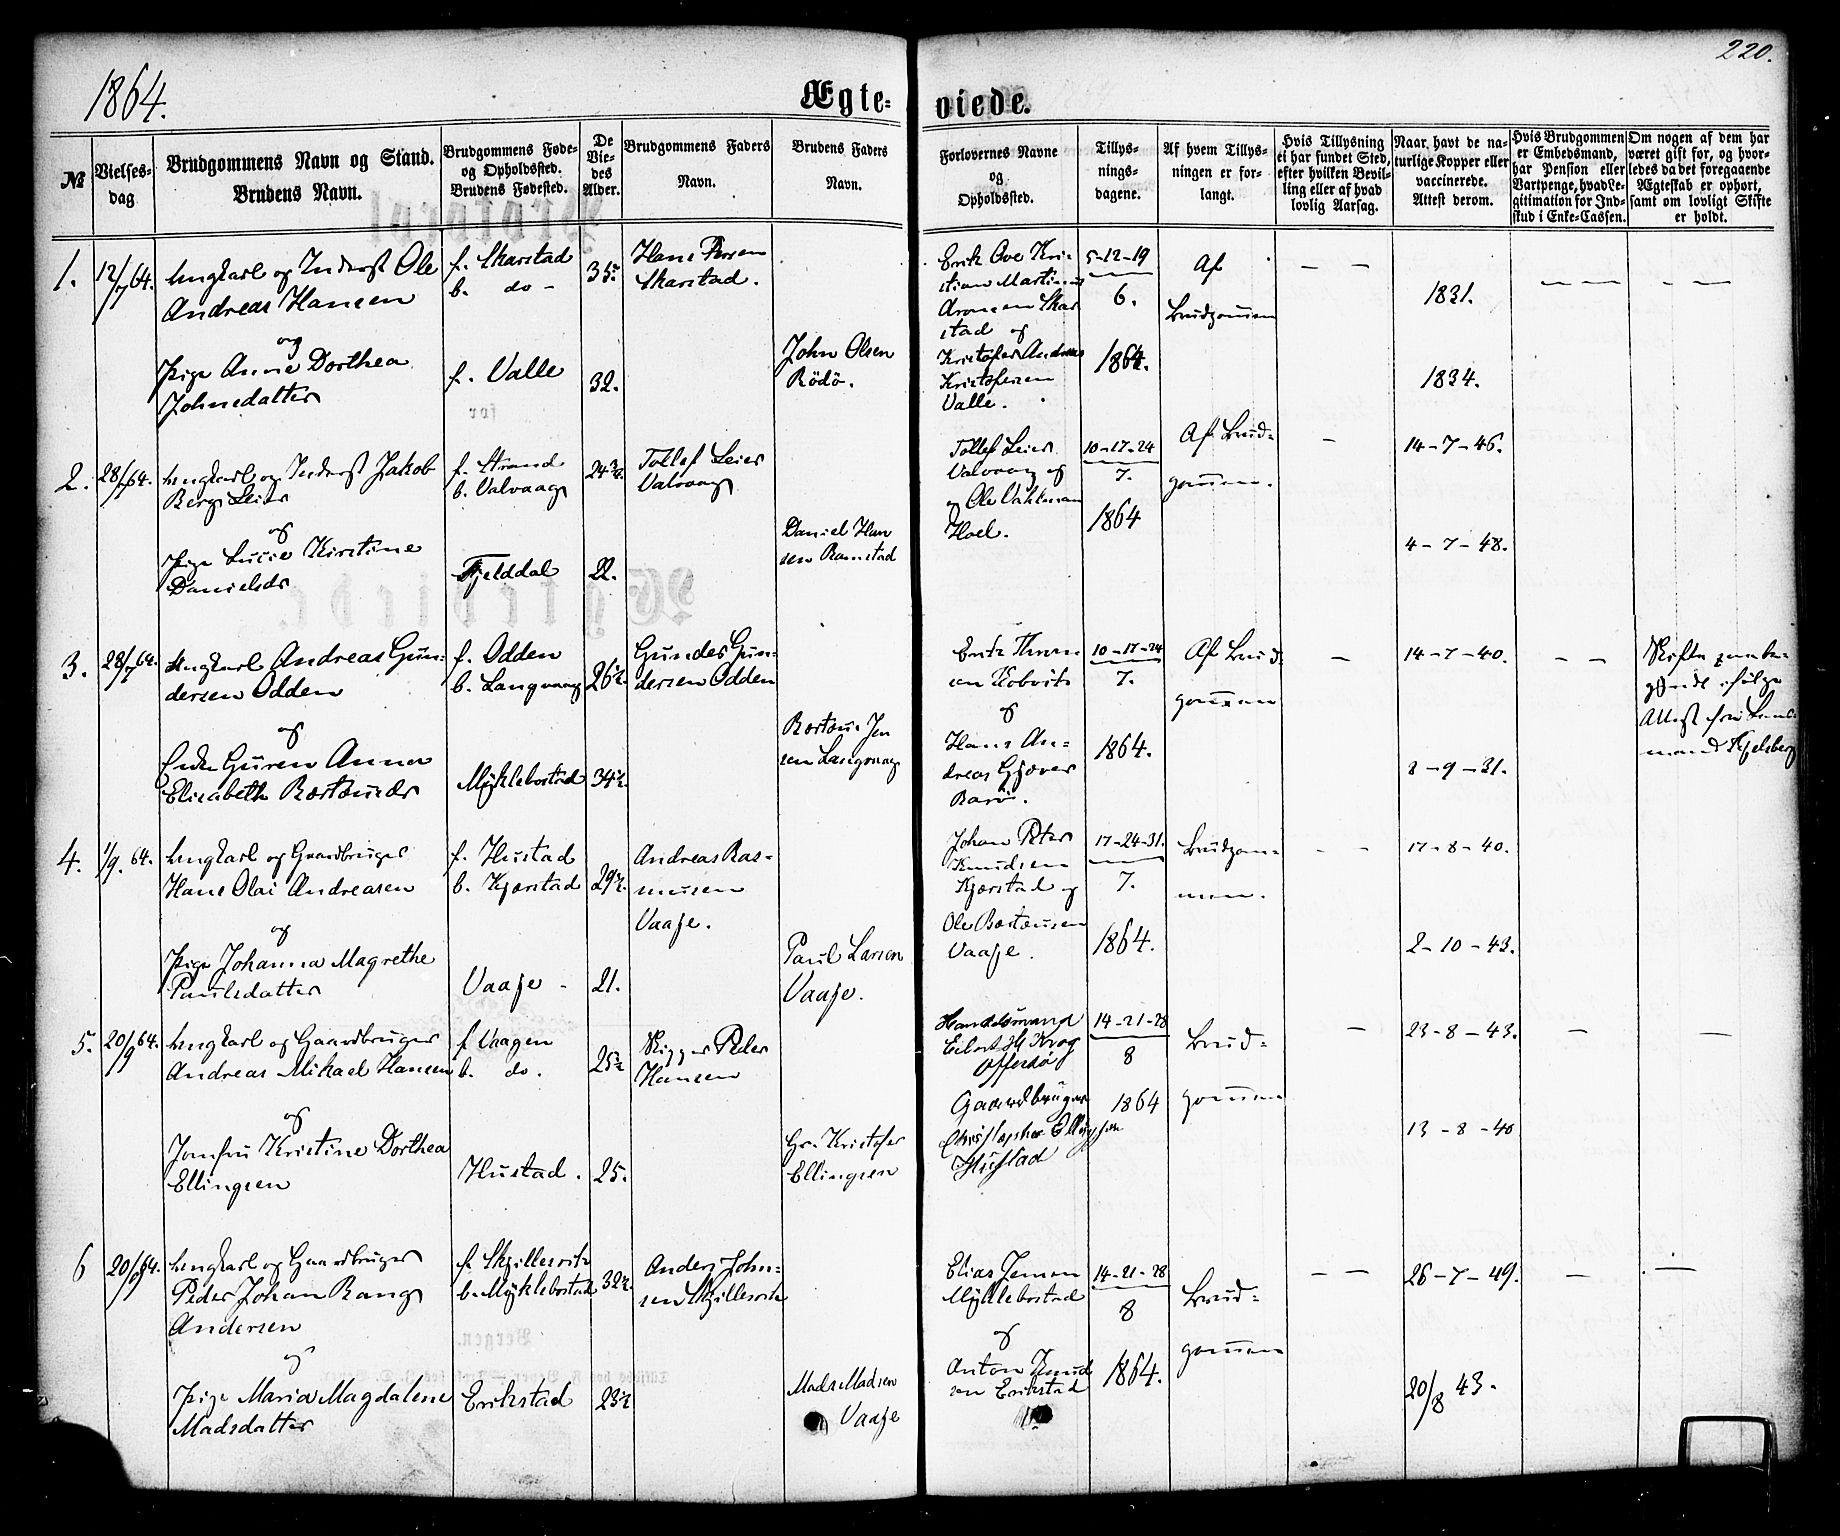 220.
1864.
Ægte-
viede.
№
Vielses-
dag
Brudgommens Navn og Stand.
Brudens Navn.
Brudgommens Føde-
og Opholdssted.
Brudens Fødested.
De
Vie-
des
Alder.
Brudgommens Faders
Navn.
Brudens Faders
Navn.
Forlovernes Navne
og
Opholdssted.
Tillys-
nings-
dagene.
Af hvem Tillys-
ningen er for-
langt.
Hvis Tillysning
ei har fundet Sted,
efter hvilken Bevil-
ling eller af hvad
lovlig Aarsag.
Naar havt de na-
turlige Kopper eller
vaccinerede.
Attest derom.
Hvis Brudgommen
er Embedsmand,
har Pension eller
Vartpenge, hvad Le-
gitimation for Ind-
skud i Enke-Cassen.
Om nogen af dem har
været gift før, og hvor-
ledes da det foregaaende
Ægteskab er ophørt,
samt om lovligt Skifte
er holdt.
1.
12/7 64.
Ungkarl og Inderst Ole
Andreas Hansen
og
Pige Anne Dorthea
Johnsdatter
f. Skarstad
b. do -
f. Valle
35.
32.
Hans Persen
Skarstad.
John Olsen
Rödö.
Erik Ove Kri-
stian Martinus
Aronsen Skar
stad og
Kristofer Andreas
Kristofersen
Valle.
5-12-19
6.
1864.
Af
Brudgommen
— —
1831.
1834.
— —
— —
2.
28/7 64.
Ungkarl og Inderst Jakob
Berg Leier
og
Pige Lucie Kirstine
Danielsdr
f. Strand
b. Valvaag
Fjelddal
24 3/4.
22.
Tollef Leier
Valvaag
Daniel Han
sen Ramstad
Tollef Leier
Valvaag og
og Ole Vahlman
Hoel.
10-17-24
7.
1864
Af Brud-
gommen.
—
14-7-46.
4-7-48.
3.
28/7 64.
Ungkarl Andreas Gun-
dersen Odden
og
Enke Guren Anna
Elisabeth Bertheusdr
f. Odden
b. Langvaag
Myklebostad
26 1/2.
34 1/2.
Gunder Gun-
dersen Odden
Bertheus Jen
sen Langvaag
Erik Thom
sen Kobvik
og
Hans An-
dreas Gjæver
Barö.
10-17-24
7.
1864.
Af Brud-
gommen
—
14-7-40.
8-9-31.
— —
Skifte
ifølge
Attest fra Lens-
mand Kjelsberg
4.
1/9. 64.
Ungkarl og Gaardbruger
Hans Olai Andreasen
og
Pige Johanna Magrethe
Paulsdatter
f. Hustad
b. Kjerstad
Vaaje -
29 1/2.
21.
Andreas Ras-
mussen
Vaaje.
Paul Larsen
Vaaje.
Johan Peter
Knudsen
Kjerstad og
Ole Bertheussen
Vaaje.
17-24-31.
7.
1864.
Brudgom-
men.
- -
17-8-40.
2-10-43.
5.
20/9 64.
Ungkarl og Gaardbruger
Andreas Mikael Hansen
og
Jomfru Kristine Dorthea
Ellingsen
f. Vaagen
b. do.
Hustad.
25 1/2
25.
Skipper Peder
Hansen
Gr. Kristofer
Ellingsen
Handelsmand
Eilert H. Krog
Offersø
Gaardbruger
Christopher Ellingsen
Hustad
14-21-28
8
1864
Brud-
gommen
—
23-8-43.
13-8-40
—
—
6
20/9 64.
Ungkarl og Gaardbruger
Peder Johan Bang
Andersen
og
Pige Maria Magdalene
Madsdatter
f. Skjillesvik
b. Myklebostad
Erikstad
32 1/2.
23 1/2
Anders John-
sen Skjillesvik
Mads Madsen
Vaaje
Elias Jensen
Myklebostad
og
Anton Knud
sen Erikstad
14-21-28
8
1864.
Brud-
gommen
— —
26-7-49.
20/8 43.
—
—